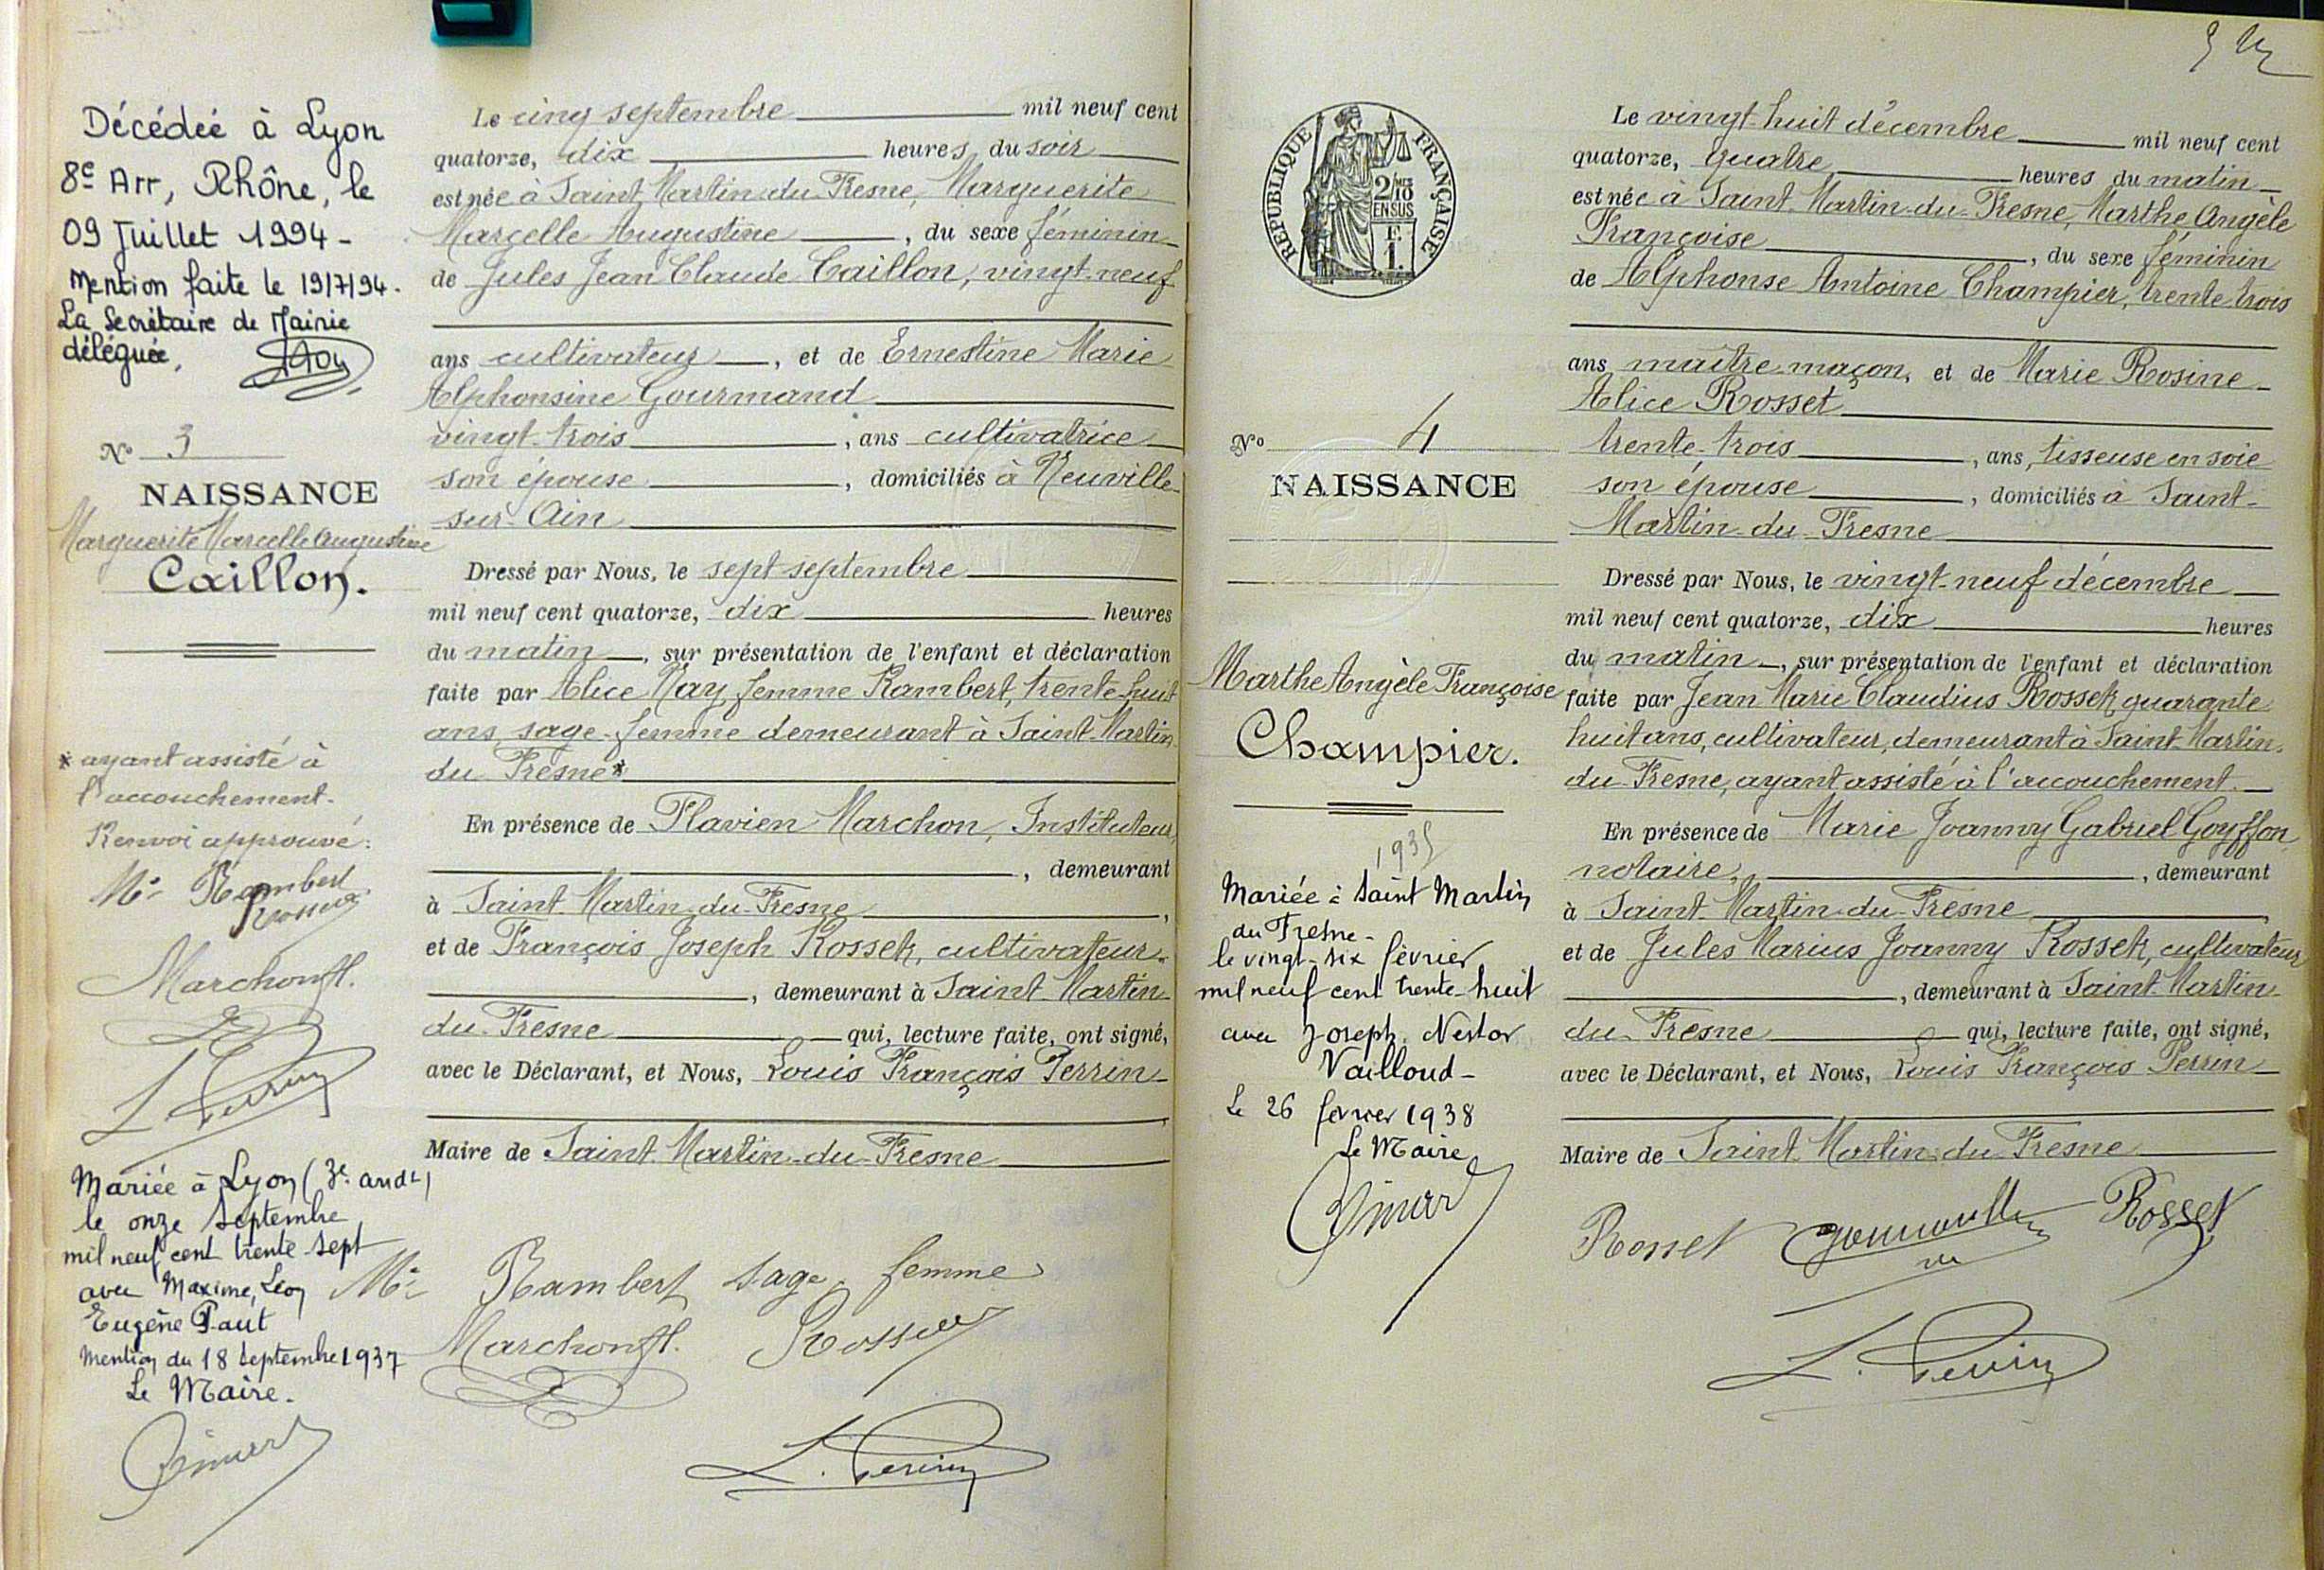 Décédée à Lyon
8e Arr, Rhône, le
09 Juillet 1994 -
Mention faite le 19/7/94.
La Secrétaire de Mairie
déléguée,
No 3
NAISSANCE
Marguerite Marcelle Augustine
Caillon.
* ayant assisté à
l'accouchement.
Renvoi approuvé:
Me Rambert
Rosset
Marchon fl.
L. Perrin
Mariée à Lyon (3e arrdt)
le onze septembre
mil neuf cent trente sept
avec Maxime, Léon
Eugène Paut
Mention du 18 septembre 1937
Le Maire.
Le cinq septembre mil neuf cent
quatorze, dix heures du soir
est née à Saint-Martin-du-Fresne, Marguerite
Marcelle Augustine, du sexe féminin
de Jules Jean Claude Caillon, vingt-neuf
ans cultivateur, et de Ernestine Marie
Alphonsine Gourmand
vingt-trois, ans cultivatrice
son épouse, domiciliés à Neuville-
sur-Ain
Dressé par Nous, le sept septembre
mil neuf cent quatorze, dix heures
du matin, sur présentation de l'enfant et déclaration
faite par Alice Nay, femme Rambert, trente-huit
ans sage-femme demeurant à Saint-Martin
du-Fresne*
En présence de Flavien Marchon, Instituteur,
, demeurant
à Saint-Martin-du-Fresne,
et de François Joseph Rosset, cultivateur
, demeurant à Saint-Martin-
du-Fresne qui, lecture faite, ont signé,
avec le Déclarant, et Nous, Louis François Perrin
Maire de Saint-Martin-du-Fresne
Me Rambert sage-femme
Marchon fl. Rosset
L. Perrin
RÉPUBLIQUE FRANÇAISE
2/10 MES
EN SUS
F.
1.
No 4
NAISSANCE
Marthe Angèle Françoise
Champier.
1935
Mariée à Saint Martin
du Fresne -
le vingt-six février
mil neuf cent trente-huit
avec Joseph, Nestor
Vailloud -
Le 26 février 1938
Le Maire
Le vingt-huit décembre mil neuf cent
quatorze, quatre heures du matin
est née à Saint-Martin-du-Fresne, Marthe Angèle
Françoise, du sexe féminin
de Alphonse Antoine Champier, trente-trois
ans maître-maçon, et de Marie Rosine
Alice Rosset
trente-trois, ans, tisseuse en soie
son épouse, domiciliés à Saint-
Martin-du-Fresne
Dressé par Nous, le vingt-neuf décembre
mil neuf cent quatorze, dix heures
du matin, sur présentation de l'enfant et déclaration
faite par Jean Marie Claudius Rosset, quarante
huit ans, cultivateur, demeurant à Saint-Martin-
du-Fresne, ayant assisté à l'accouchement.
En présence de Marie Joanny Gabriel Goyffon
notaire, , demeurant
à Saint-Martin-du-Fresne,
et de Jules Marius Joanny Rosset, cultivateur
, demeurant à Saint-Martin-
du-Fresne qui, lecture faite, ont signé,
avec le Déclarant, et Nous, Louis François Perrin
Maire de Saint-Martin-du-Fresne
Rosset Rosset
L. Perrin